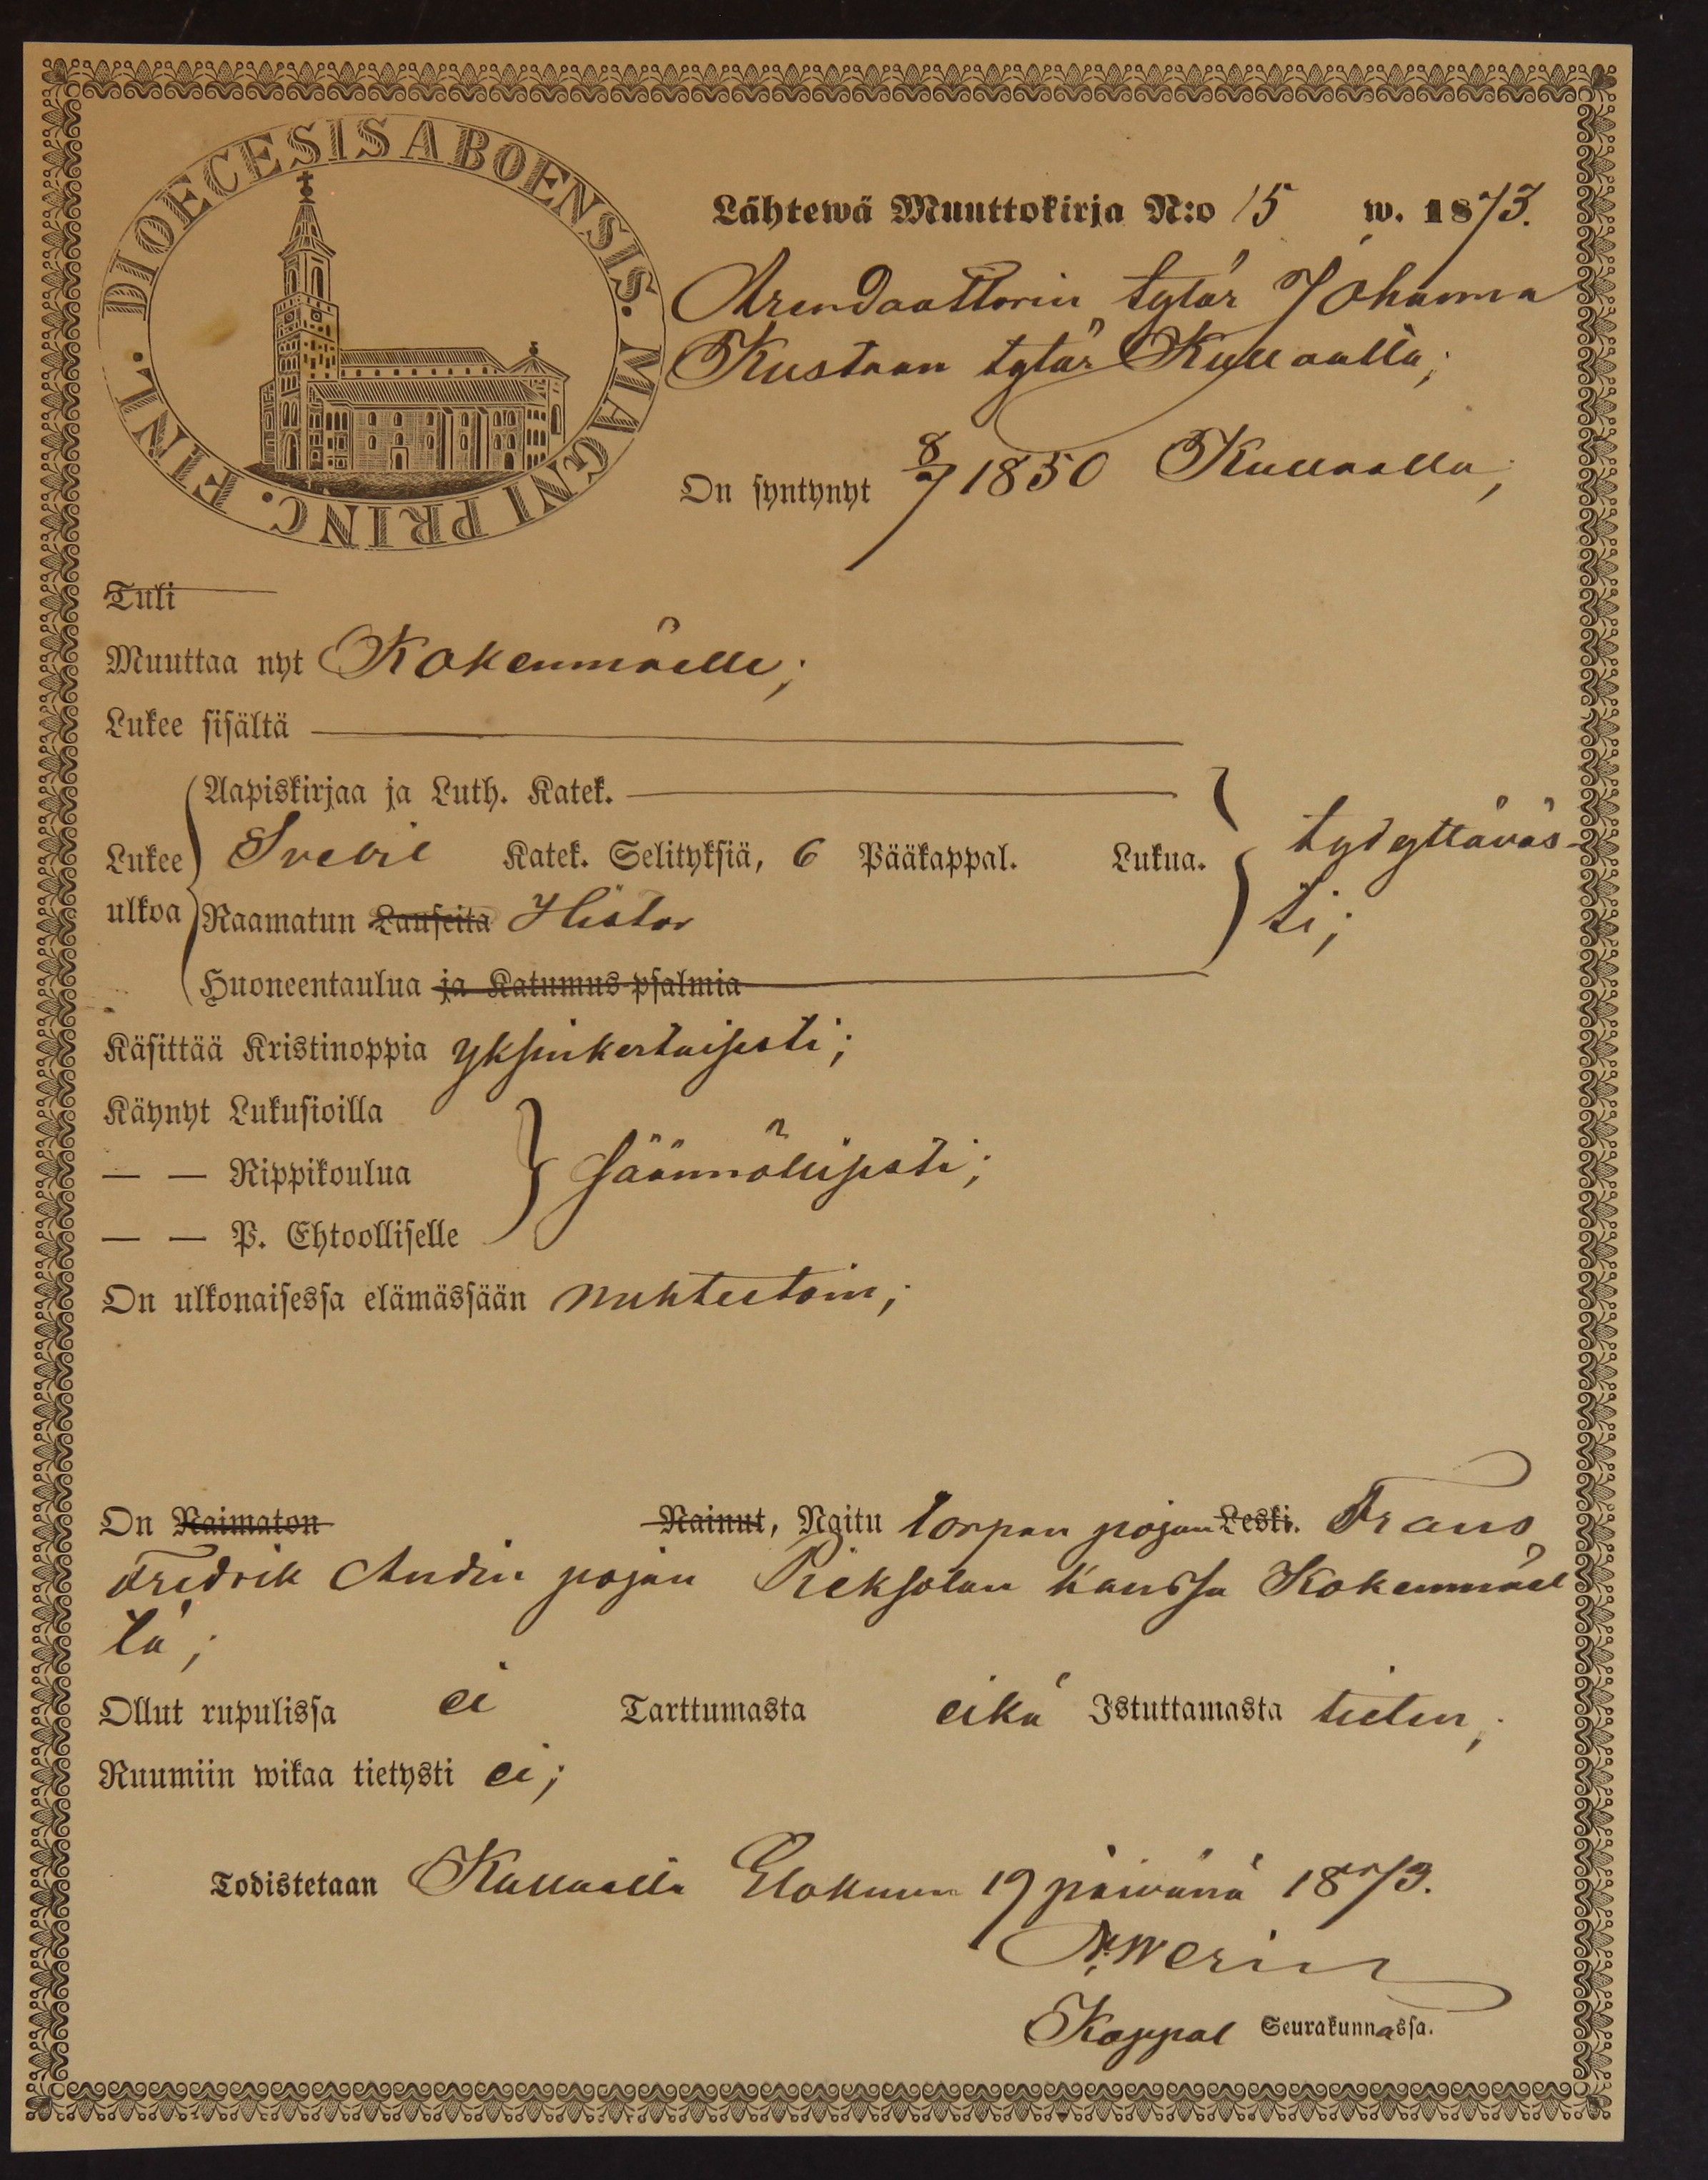 DIOECESIS ABOENSIS. MAGNI PRINC. FINL.
Lähtewä Muuttokirja N:o 15 w. 1873.
Arendaattorin tytär Johanna
Kustaan tytär Kullaalla;
On syntynyt 8/7 1850 Kullaalla;
Tuli
Muuttaa nyt Kokenmäelle;
Lukee sisältä
Aapiskirjaa ja Luth. Katek.
Lukee Svebil Katek. Selityksiä, 6 Pääkappal. Lukua. tydyttäväs-
ulkoa Raamatun Lauseita Histor ti;
Huoneentaulua ja Katumus-psalmia
Käsittää Kristinoppia yksinkertaisesti;
Käynyt Lukusioilla
— — Rippikoulua säännöllisesti;
— — P. Ehtoolliselle
On ulkonaisessa elämässään nuhteetoin;
On Naimaton Nainut, Naitu torpan pojan Leski. Frans
Fredrik Andin pojan Rieksolan kanssa Kokenmäel
tä;
Ollut rupulissa ei Tarttumasta eikä Istuttamasta tieten;
Ruumiin wikaa tietysti ei;
Todistetaan Kullaalla Elokuun 19 päivänä 1873.
Kappal Seurakunnassa.